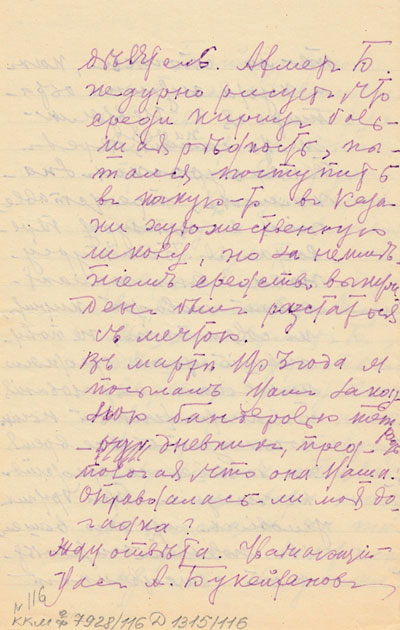 дѣятель. Ахметъ Б.
недурно рисуетъ, что
среди киргиз. боль-
шая рѣдкость, пы-
тался поступить
въ какую-то въ Каза-
ни художественную
школу, но за неимѣ-
ніемъ средствъ вынуж
денъ былъ разстаться
съ мечтою.
Въ мартѣ 1923 года я
послалъ Вамъ заказ
ною бандеролью тет
радь дневникъ, пред-
полагая что она Ваша.
Оправдалась-ли моя до-
гадка?
Жду отвѣта. Уважающій
Вас А. Букейханов
116
ККМ 7928/116 Д 1315/116